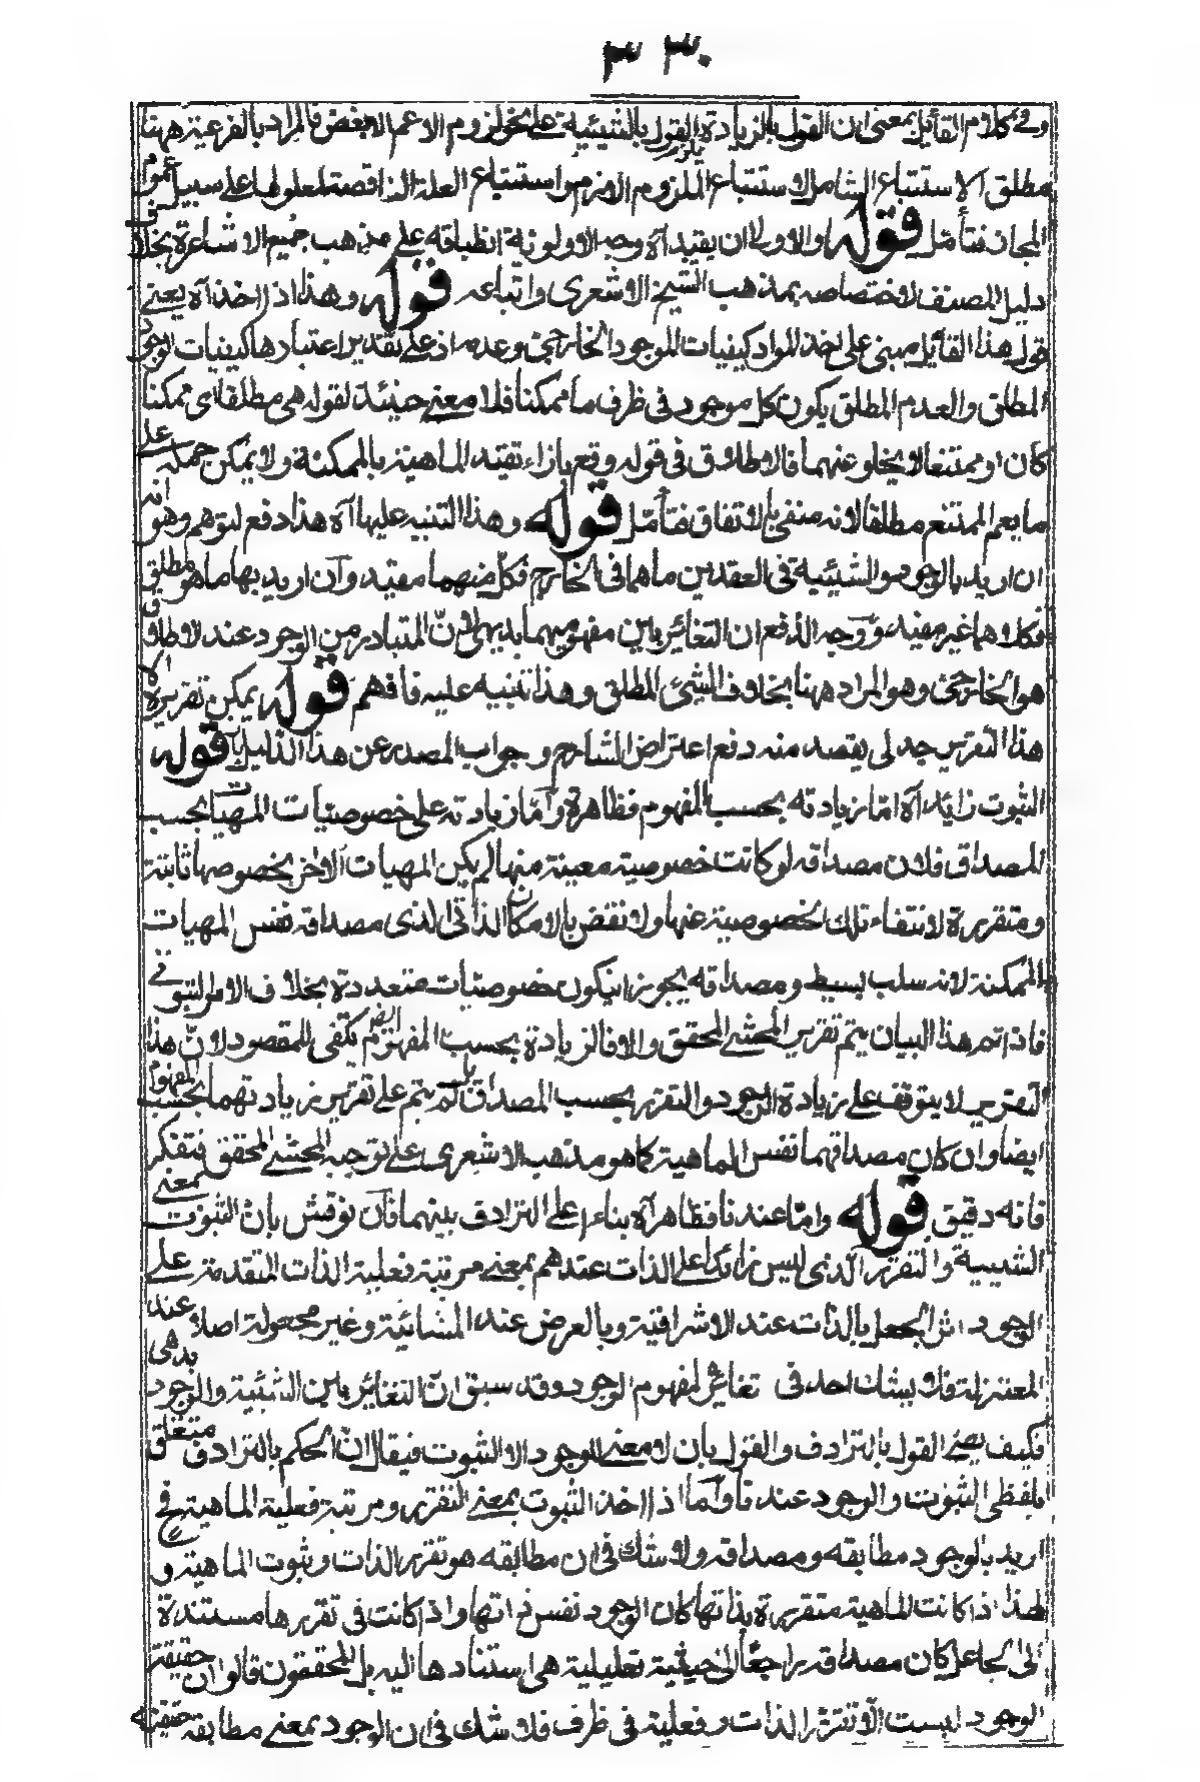 ٣٣٠
وفي كلام القائل بمعنى ان القول بالزيادة يلزمه القول بالشيئية على نحو لزوم الاعم الاخص فالمراد بالفرعية ههنا
مطلق الاستتباع الشامل لاستتباع الملزوم اللازم من استتباع العلة الناقصة لمعلولها على سبيل عموم
المجاز فتأمل قوله والاولى ان يقيد آه وجه الاولوية انطباقه على مذهب جميع الاشاعرة بخلاف
دليل المصنف لاختصاصه بمذهب الشيخ الاشعرى واتباعه قوله وهذا اذا اخذ آه يعنى
قول هذا القائل مبنى على اخذ المواد كيفيات للوجود الخارجى وعدمه اذ على تقدير اعتبارها كيفيات الوجود
المطلق والعدم المطلق يكون كل موجود فى ظرف ما ممكنا فلا معنى حينئذ لقوله هى مطلقا اى ممكنا
كان او ممتنعا لا يخلو عنهما فالاطلاق فى قوله وقع بازاء تقييد الماهية بالممكنة ولا يمكن حمله على
ما يعم الممتنع مطلقا لانه منفى بالاتفاق فتأمل قوله وهذا التنبيه عليها آه هذا دفع لتوهم وهو انه
ان اريد بالوجود والشيئية فى العقدين ما هما فى الخارج فكل منهما مفيد وان اريد بها ما هو مطلق
فكلاهما غير مفيد ووجه الدفع ان التغاير بين مفهوميهما بديهى لان المتبادر من الوجود عند الاطلاق
هو الخارجى وهو المراد ههنا بخلاف الشئ المطلق وهذا تنبيه عليه فافهم قوله يمكن تقريره الا
هذا التقرير جدلى يقصد منه دفع اعتراض الشارح وجواب المصدر عن هذا الدليل قوله
الثبوت زائد آه اما زيادته بحسب المفهوم فظاهرة واما زيادته على خصوصيات المهيات بحسب
المصداق فلان مصداقه لو كانت خصوصية معينة منها لم يكن المهيات الاخر بخصوصها ثابتة
ومتقررة لانتفاء تلك الخصوصية عنها ولا نقض بالامكان الذاتى الذى مصداقه نفس المهيات
الممكنة لانه سلب بسيط ومصداقه يجوز ان يكون خصوصيات متعددة بخلاف الامر الثبوتى
فاذا تم هذا البيان يتم تقرير المحشى المحقق والا فالزيادة بحسب المفهوم ايضا يكفى للمقصود لان هذا
التقرير لا يتوقف على زيادة الوجود والتقرر بحسب المصداق بل يتم على تقرير زيادتهما بحسب المفهوم
ايضا وان كان مصداقهما نفس الماهية كما هو مذهب الاشعرى على توجيه المحشى المحقق فتفكر
فانه دقيق قوله واما عندنا فظاهر آه بناء على الترادف بينهما فان نوقش بان الثبوت بمعنى
الشيئية والتقرر الذى ليس زائدا على الذات عندهم بمعنى مرتبة فعلية الذات المتقدمة على
الوجود اثر الجعل بالذات عند الاشراقية وبالعرض عند المشائية وغير مجعولة اصلا عند
المعتزلة فلا يشك احد فى تغاير لمفهوم الوجود وقد سبق ان التغاير بين الشيئية والوجود بديهى
فكيف يصح القول بالترادف والقول بان لا معنى للوجود الا الثبوت فيقال ان الحكم بالترادف متعلق
بلفظى الثبوت والوجود عندنا واما اذا اخذ الثبوت بمعنى التقرر ومرتبة فعلية الماهية فح
اريد بالوجود مطابقه ومصداقه ولا شك فى ان مطابقه هو تقرر الذات وثبوت الماهية و
لهذا اذا كانت الماهية متقررة بذاتها كان الوجود نفس ذاتها واذا كانت فى تقررها مستندة
الى الجاعل كان مصداقه راجعا الى حيثية تعليلية هى استنادها اليه بل المحققون قالوا ان حقيقة
الوجود ليست الا تقرر الذات وفعليته فى ظرف فلا شك فى ان الوجود بمعنى مطابقه حقيقته